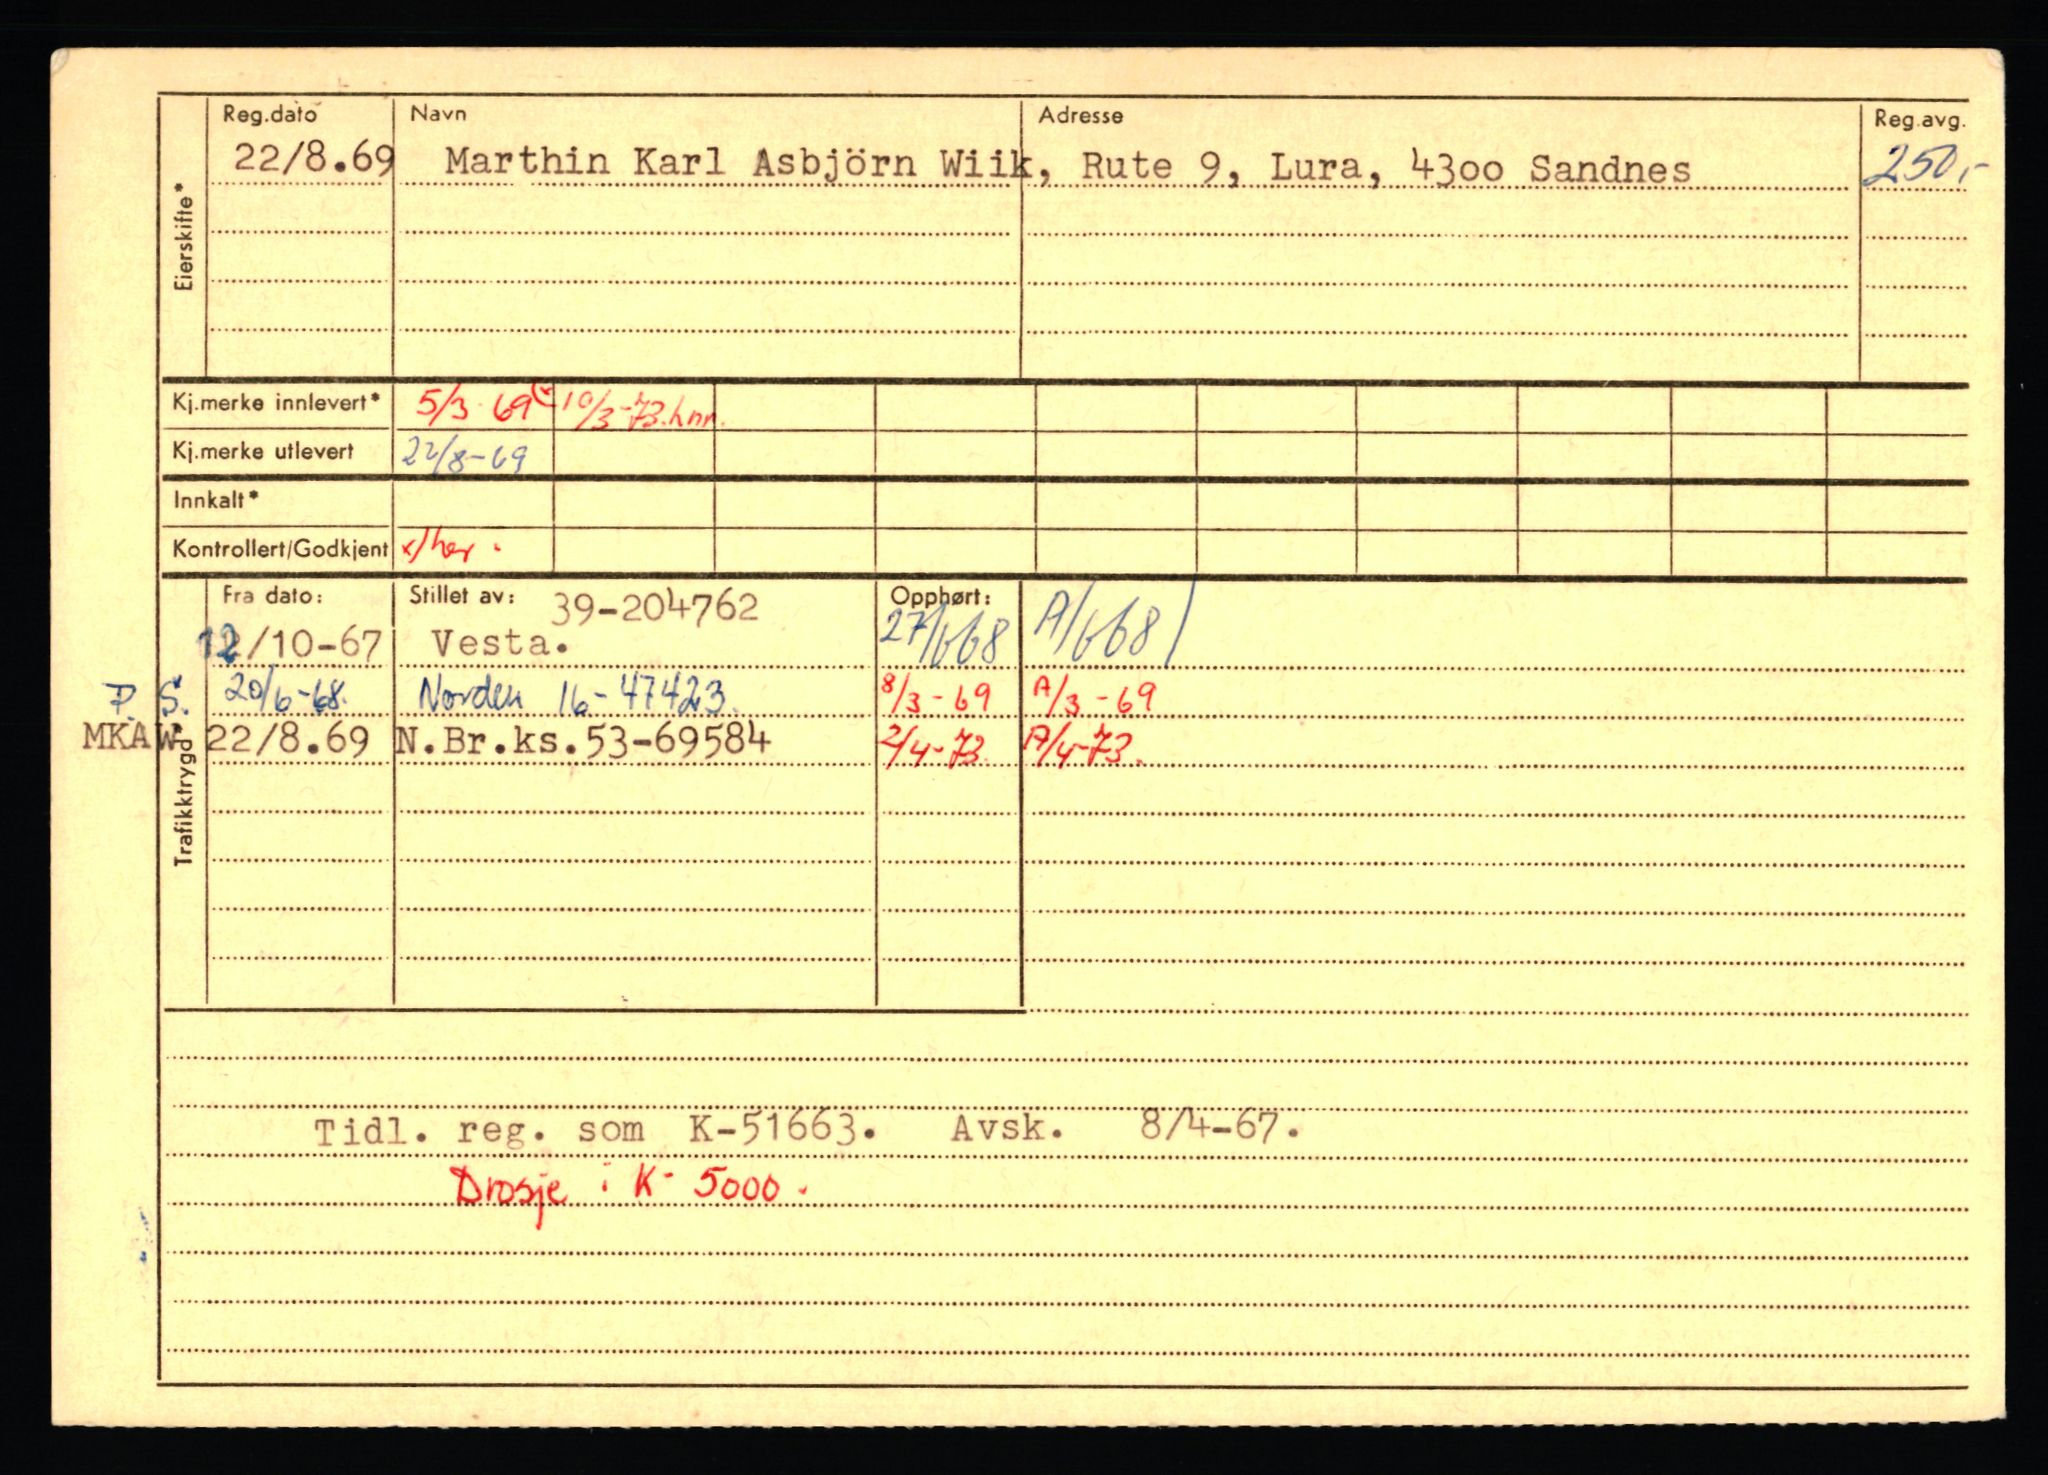 Reg.dato Navn Adresse Reg.avg.
22/8.69 Marthin Karl Asbjörn Wiik, Rute 9, Lura, 4300 Sandnes 250,-
Eierskifte*
Kj.merke innlevert* 5/3-69 (x 10/3-73. hnr.
Kj.merke utlevert 22/8-69
Innkalt*
Kontrollert/Godkjent x/her.
Fra dato: Stillet av: 39-204762 Opphørt:
12/10-67 Vesta. 27/6 68 A/6 68
P. S. 20/6-68. Norden 16-47423. 8/3-69 A/3-69
MKAW 22/8.69 N.Br.ks.53-69584 2/4-73. A/4-73.
Trafikktrygd
Tidl. reg. som K-51663. Avsk. 8/4-67.
Drosje i K- 5000.